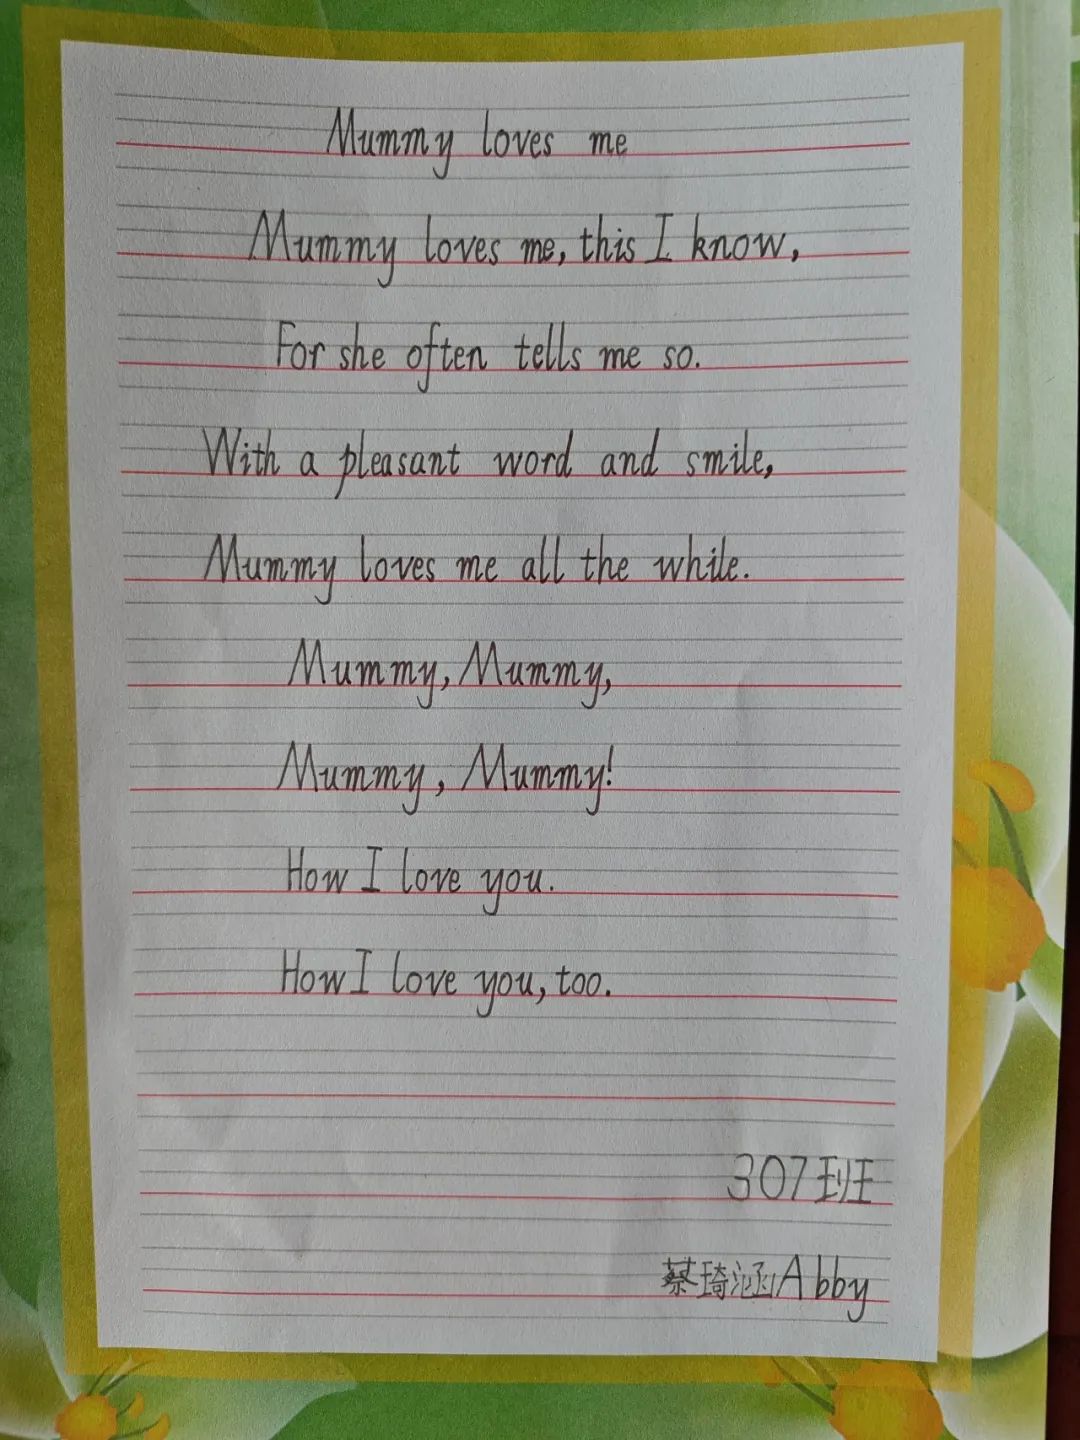 Mummy loves me
Mummy loves me, this I know,
For she often tells me so.
With a pleasant word and smile,
Mummy loves me all the while.
Mummy, Mummy,
Mummy, Mummy!
How I love you.
How I love you, too.
307班
蔡琦涵Abby